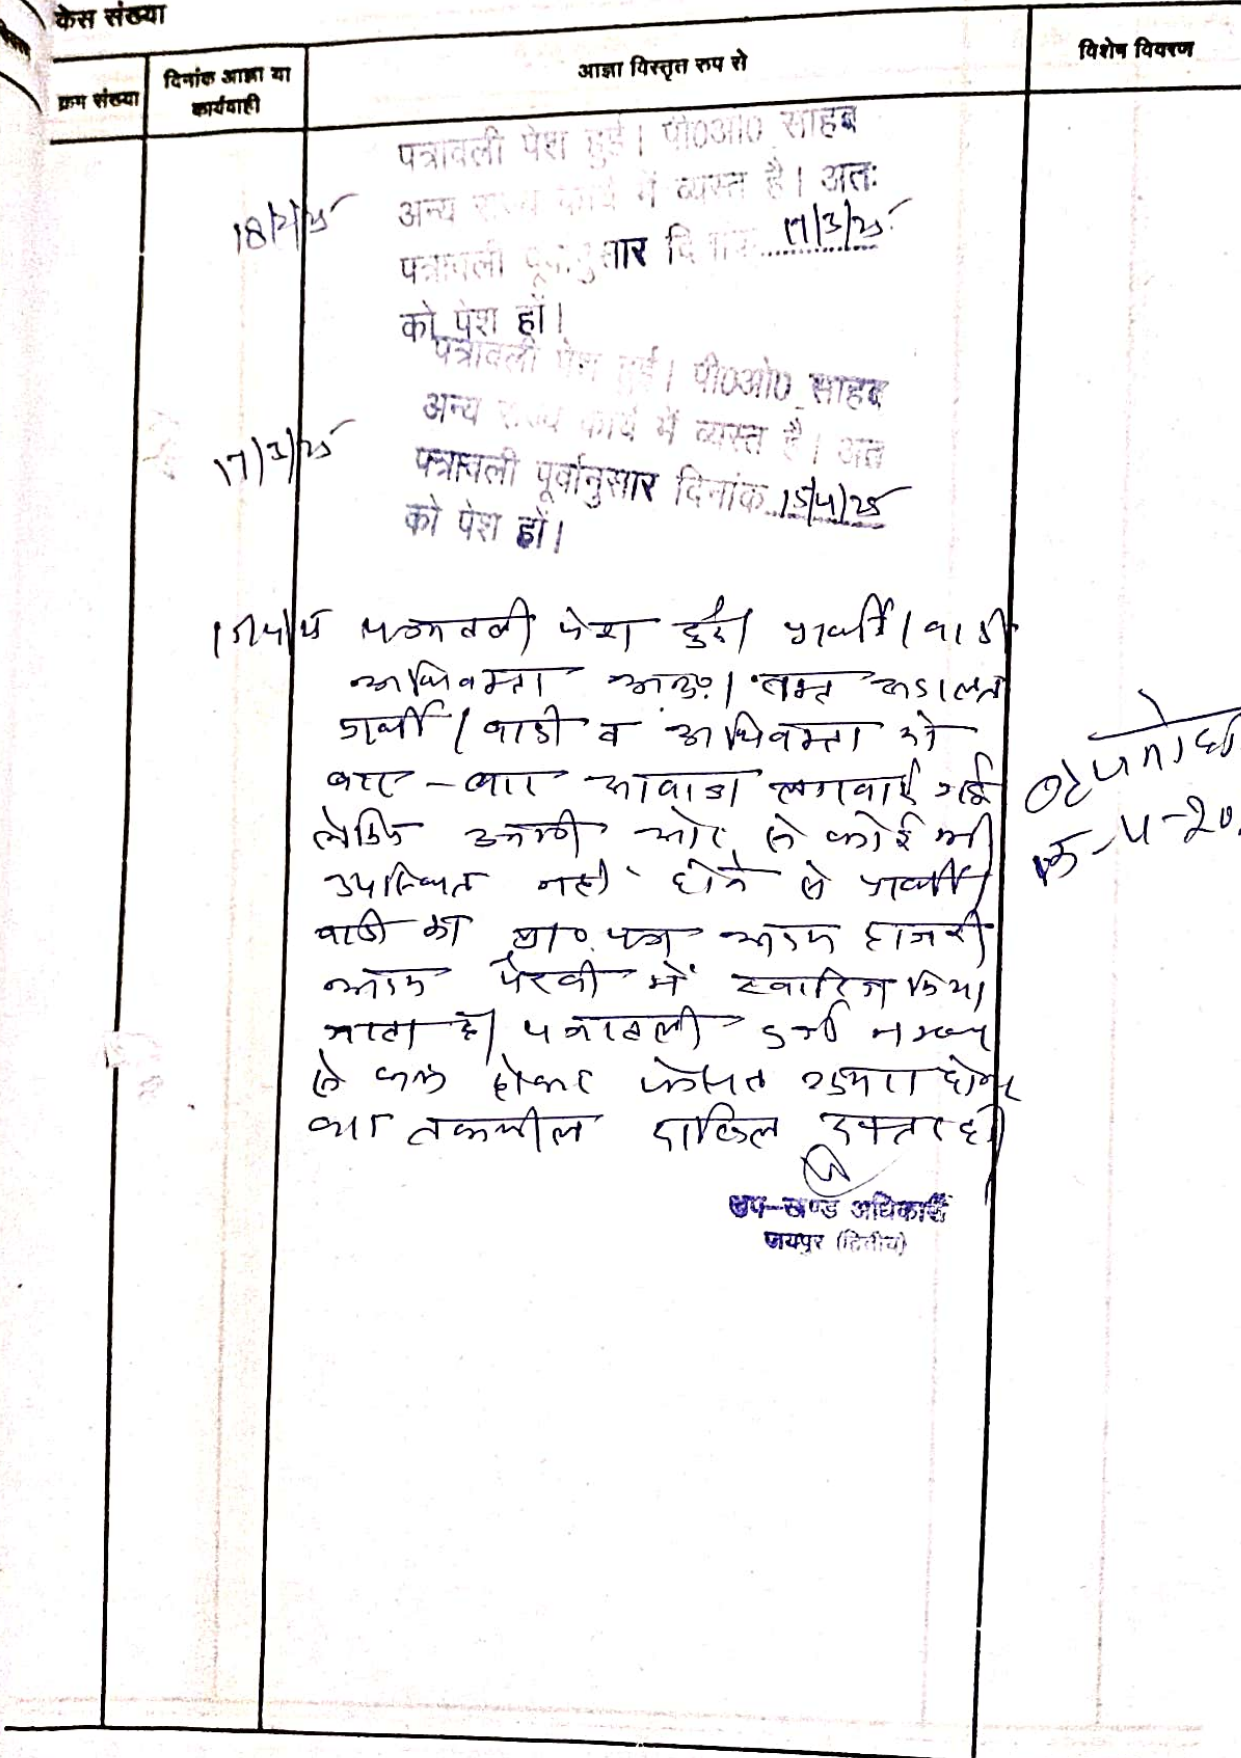 केस संख्या
क्रम संख्या
दिनांक आज्ञा या
कार्यवाही
आज्ञा विस्तृत रुप से
विशेष विवरण
पत्रावली पेश हुई। पी०ओ० साहब
18/2/25
अन्य राज्य कार्य में व्यस्त है। अतः
पत्रावली पूर्वानुसार दिनांक 17/3/25
को पेश हों।
पत्रावली पेश हुई। पी०ओ० साहब
अन्य राज्य कार्य में व्यस्त है। अत
17/3/25
पत्रावली पूर्वानुसार दिनांक 15/4/25
को पेश हों।
15/4/25 पत्रावली पेश हुई। प्रार्थी/वादी
अधिवक्ता अनु०। वक्त अदालत
प्रार्थी/वादी व अधिवक्ता को
बार-बार आवाज लगवाई गई
लेकिन उनकी ओर से कोई भी
उपस्थित नहीं होने से प्रार्थी/
वादी का प्रा०पत्र अदम हाजरी
अदम पैरवी में खारिज किया
जाता है। पत्रावली दर्ज नम्बर
से कम होकर फैसल शुमार होकर
बाद तकमील दाखिल दफ्तर हो
उप-खण्ड अधिकारी
जयपुर (द्वितीय)